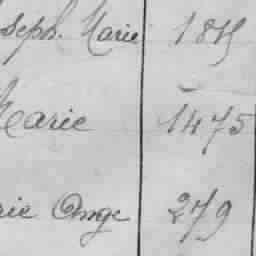 seph. Marie 1815
Marie 1475
rie Ange 279